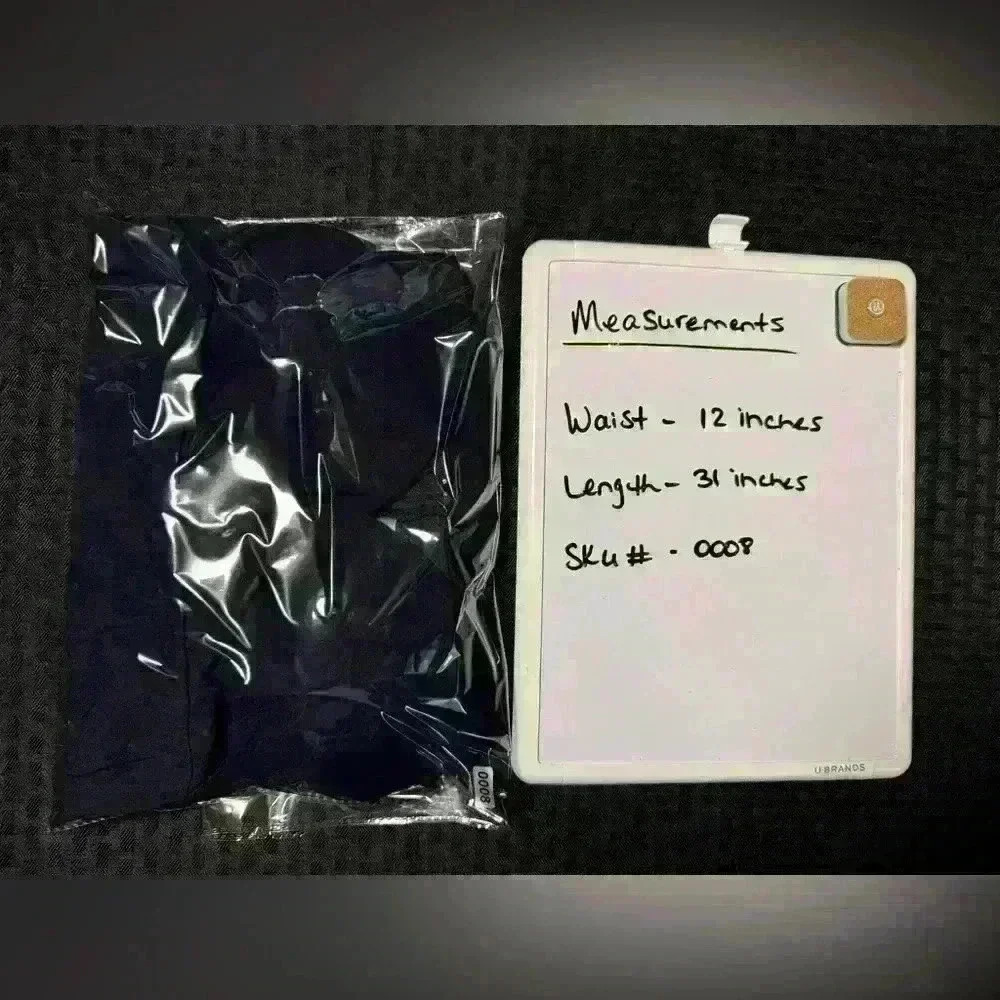 Measurements
Waist - 12 inches
Length - 31 inches
SKU # - 0008
U BRANDS
0008